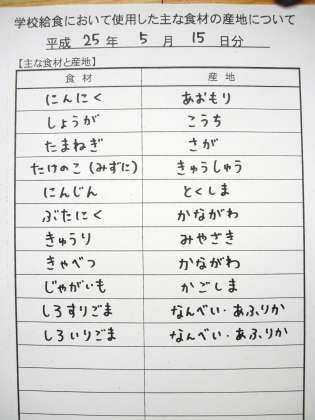 学校給食において使用した主な食材の産地について
平成 25 年 5 月 15 日分
【主な食材と産地】
食材 産地
にんにく あおもり
しょうが こうち
たまねぎ さが
たけのこ(みずに) きゅうしゅう
にんじん とくしま
ぶたにく かながわ
きゅうり みやざき
きゃべつ かながわ
じゃがいも かごしま
しろすりごま なんべい・あふりか
しろいりごま なんべい・あふりか